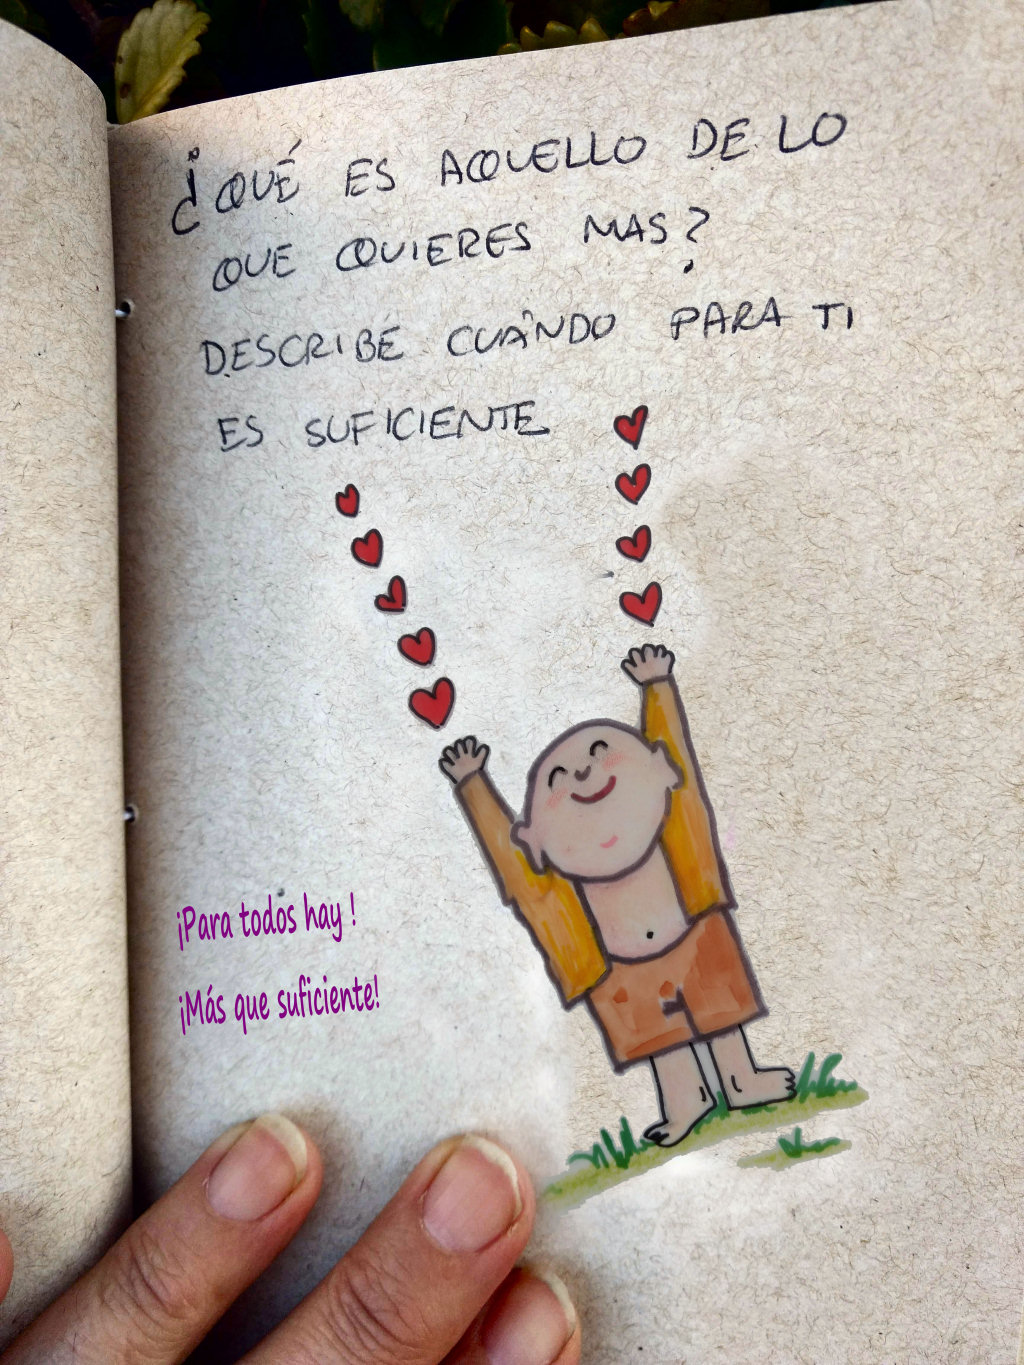 ¿QUÉ ES AQUELLO DE LO
QUE QUIERES MAS?
DESCRIBE CUÁNDO PARA TI
ES SUFICIENTE
¡Para todos hay !
¡Más que suficiente!